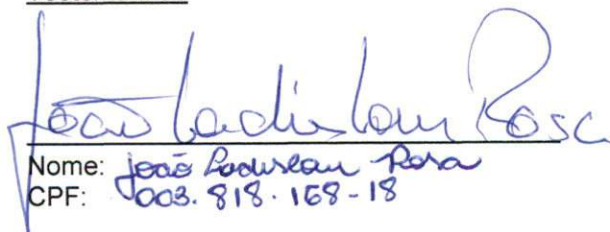 João Ladislau Rosa
Nome: João Ladislau Rosa
CPF: 003.818.168-18